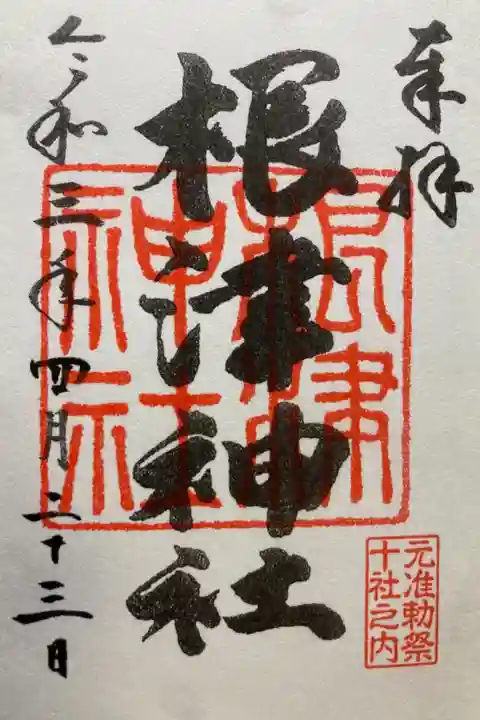 奉拝
根津神社
根津神社
元准勅祭
十社之内
令和三年四月二十三日